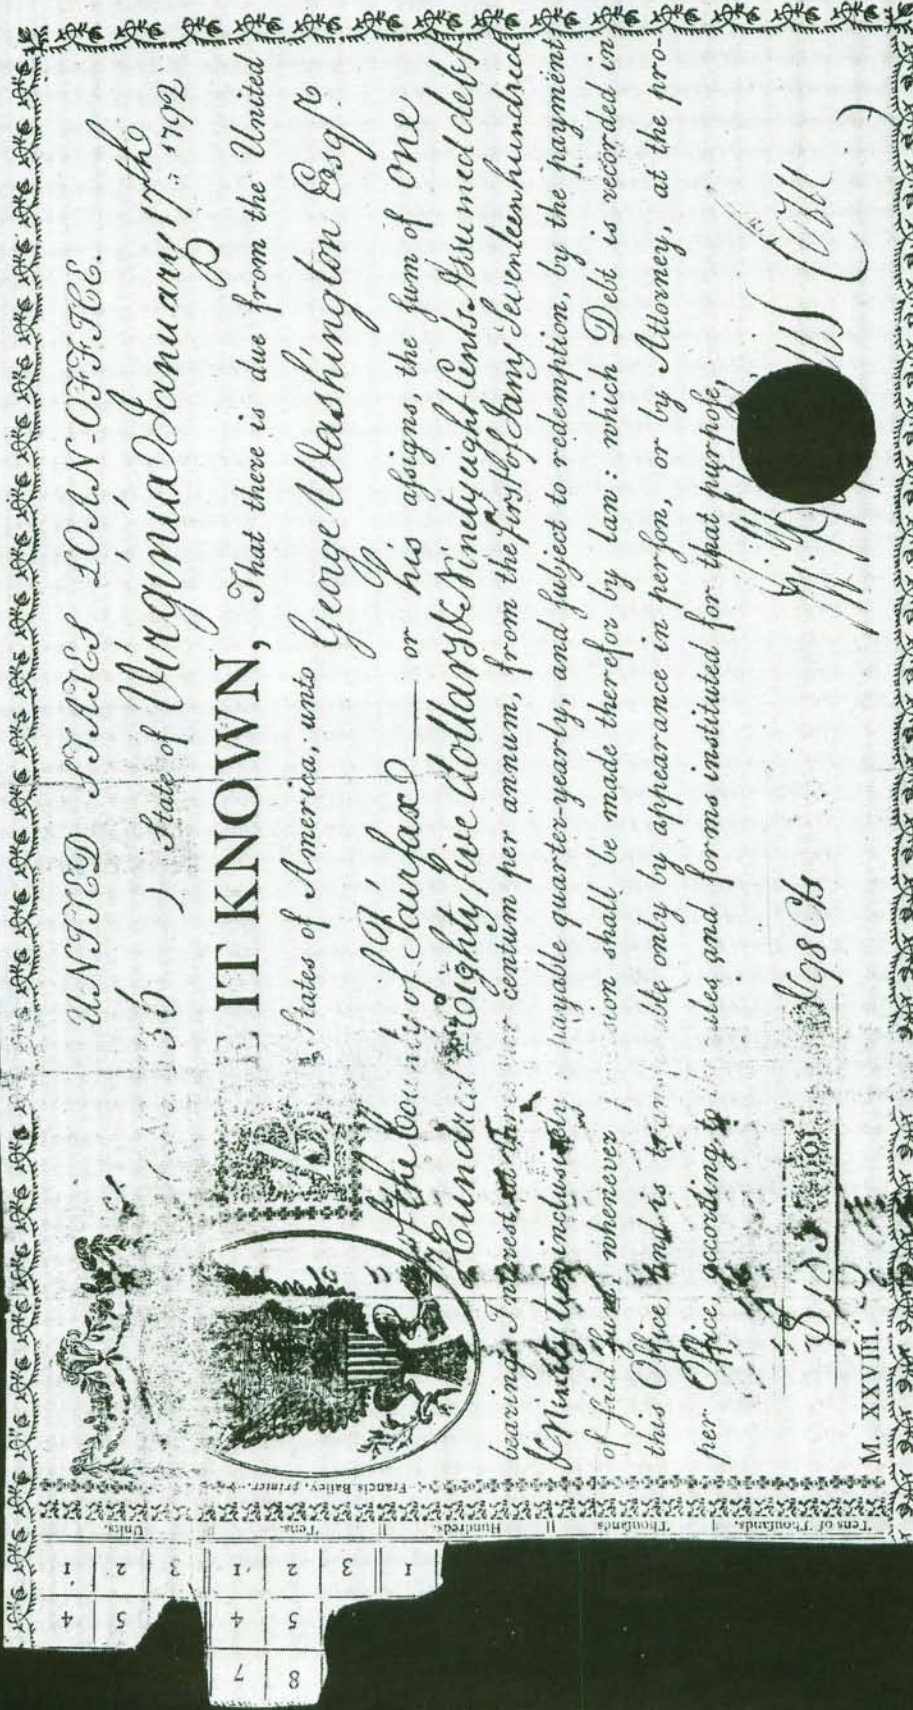 UNITED STATES LOAN-OFFICE.
State of Virginia January 17th 1792
E IT KNOWN, That there is due from the United
States of America, unto George Washington Esqr.
of the County of Fairfax or his aſsigns, the ſum of One
Hundred Eighty five dollars & Ninety eight Cents Aſsumed debt
bearing Intereſt at three per centum per annum, from the First of Jany Seventeen hundred
& Ninety two incluſively payable quarter-yearly, and ſubject to redemption, by the payment
of ſaid ſum whenever ſion ſhall be made therefor by law: which Debt is recorded in
this Office and is only by appearance in perſon, or by Attorney, at the pro-
per Office, according to rules and forms inſtituted for that purpoſe,
185 98 Cts
M. XXVIII.
Francis Bailey, printer.
Tens of Thouſands. Thouſands Hundreds. Tens. Units.
1 2 3
4 5
1 2 3
4 5
7 8
1